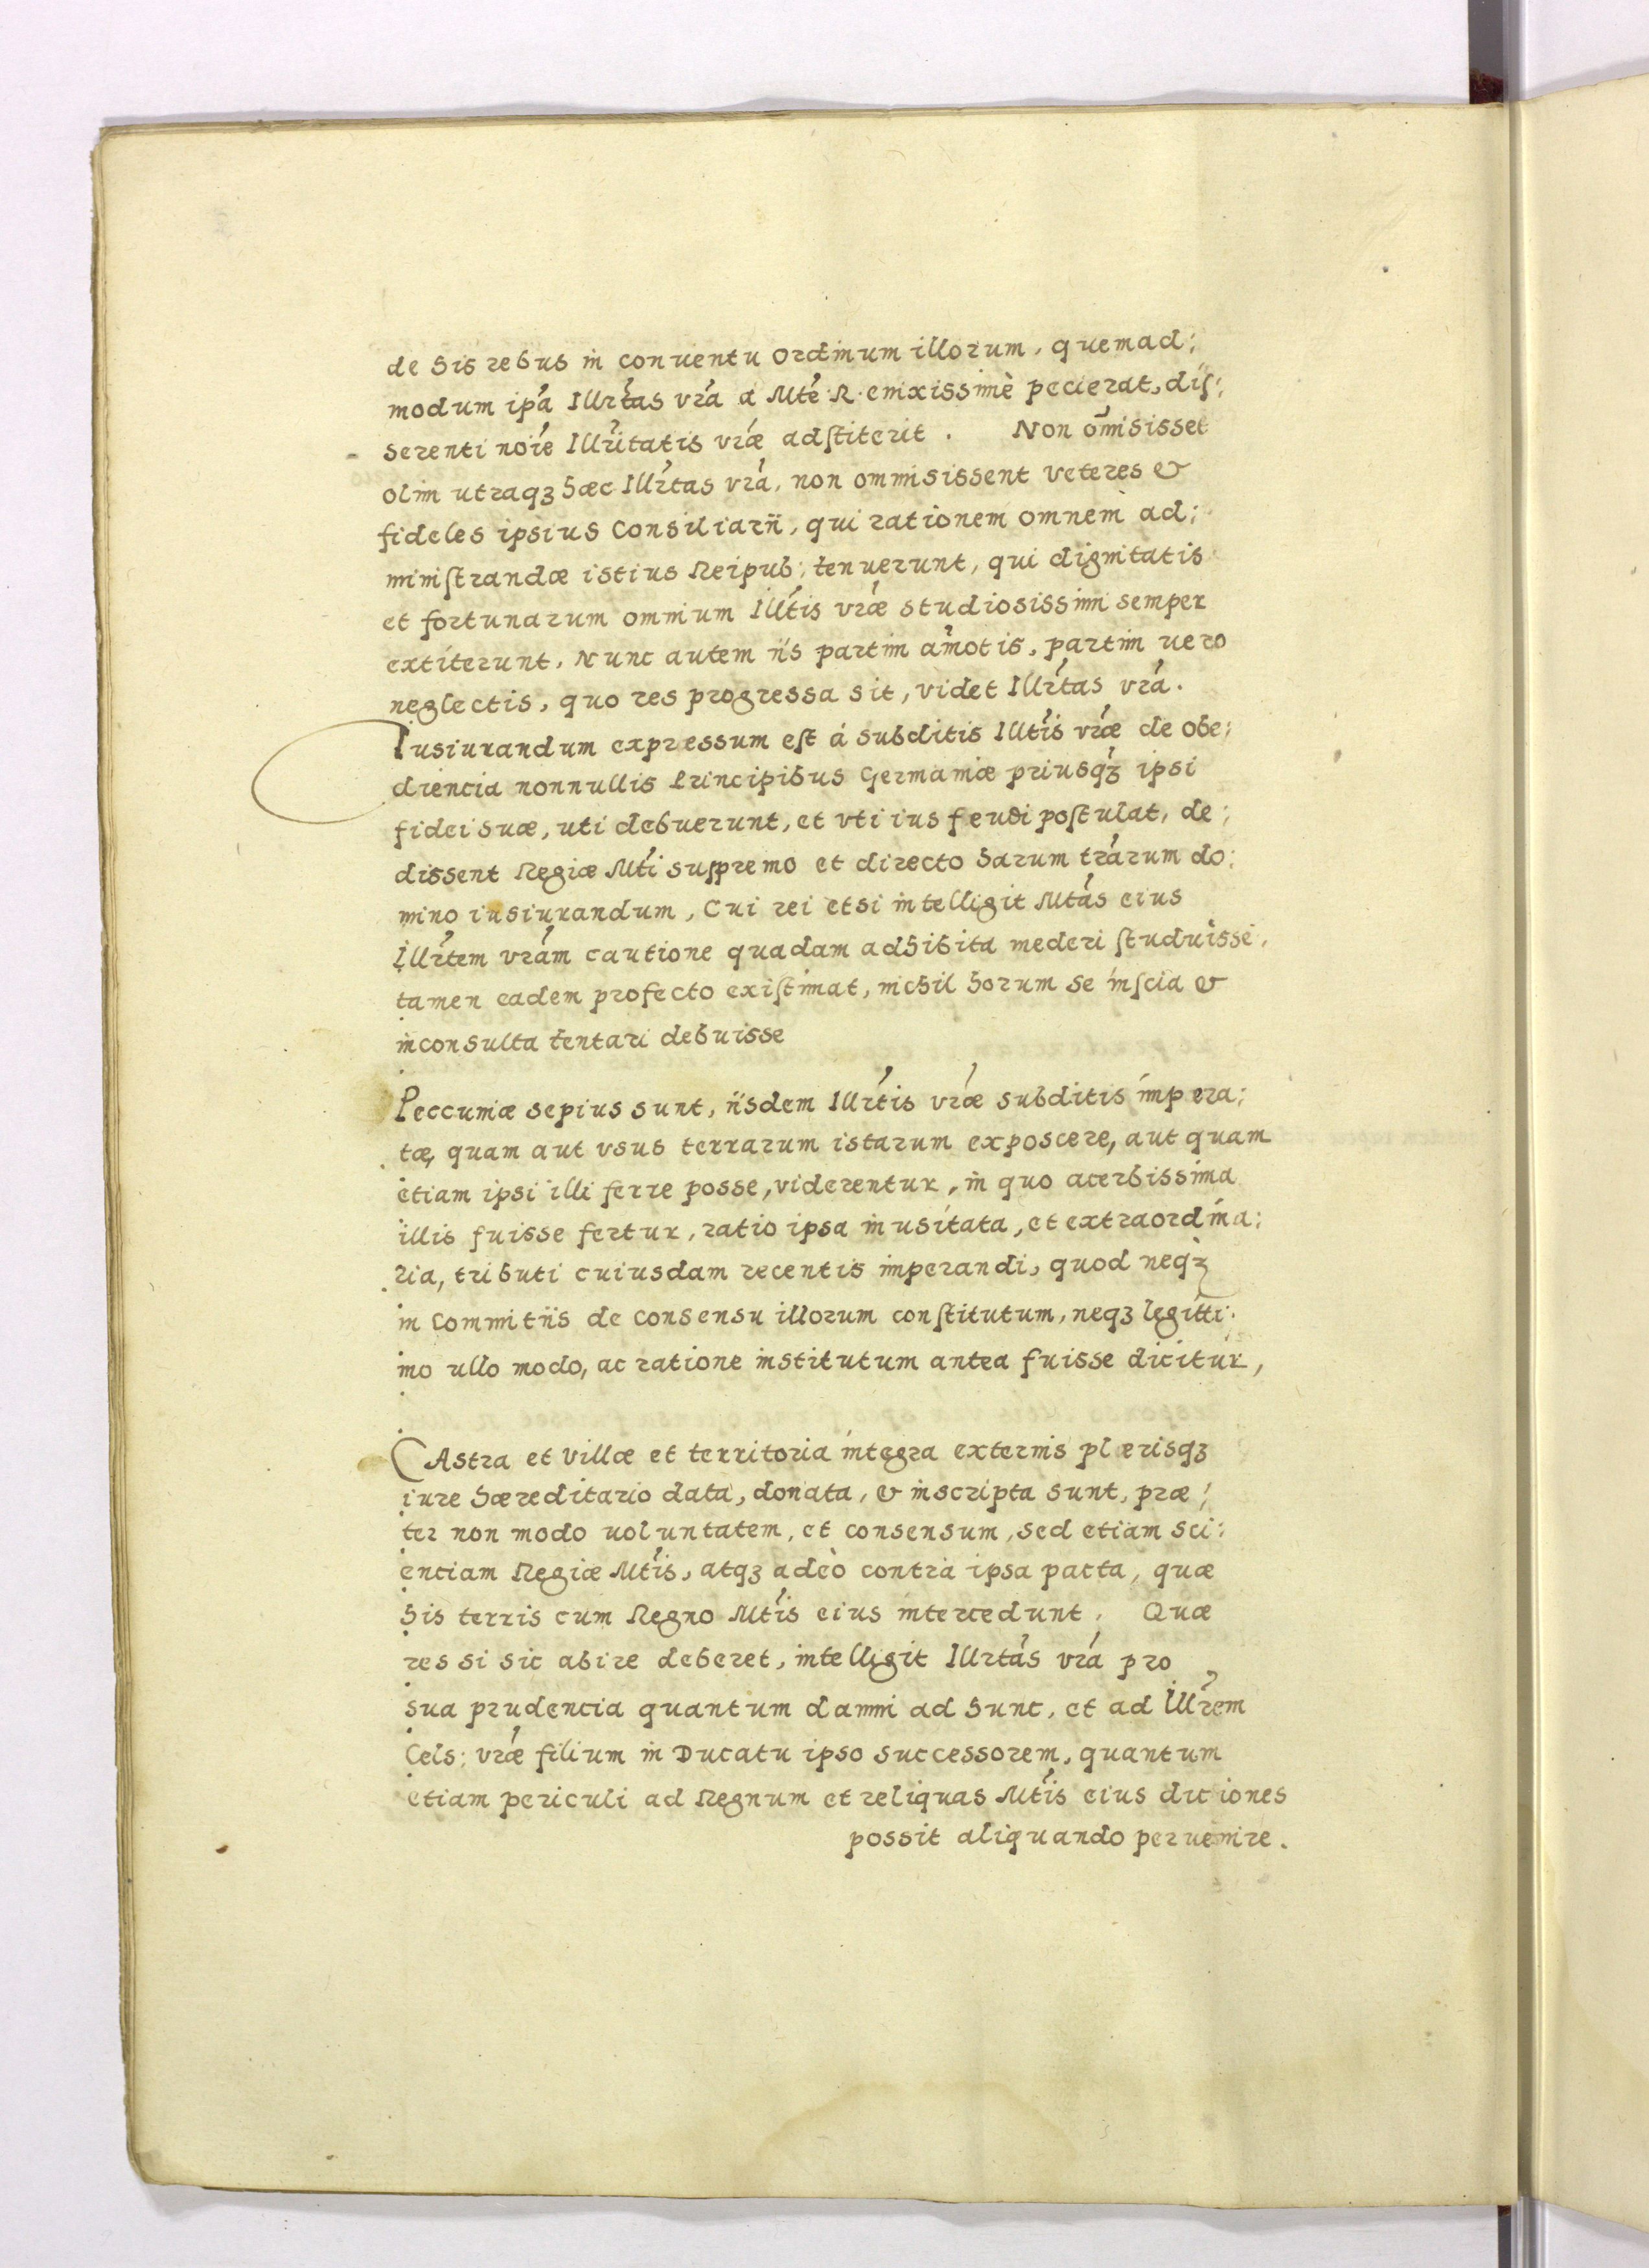 de his rebus in conuentu ordinum illorum, quemad;
modum ipa Illrtas vra a Mte R. enixissimè pecierat, dis;
serenti noie Illritatis vræ adstiterit. Non omisisset
olim utraqȝ hæc Illrtas vra, non ommisissent veteres &
fideles ipsius Consiliarii, qui rationem omnem ad;
ministrandæ istius Reipub; tenuerunt, qui dignitatis
et fortunarum omnium Illtis vræ studiosissimi semper
extiterunt, Nunc autem iis partim amotis, partim uero
neglectis, quo res progressa sit, videt Illrtas vra.
Iusiurandum expressum est á subditis Illtis vræ de obe;
diencia nonnullis Principibus Germaniæ priusqȝ ipsi
fidei suæ, uti debuerunt, et vti ius feudi postulat, de;
dissent Regiæ Mti suppremo et directo harum trarum do;
mino iusiurandum, Cui rei etsi intelligit Mtas eius
Illrtem vram cautione quadam adhibita mederi studuisse,
tamen eadem profecto existimat, nichil horum se inscia &
inconsulta tentari debuisse
Peccuniæ sepius sunt, iisdem Illrtis vræ subditis impera;
tæ, quam aut vsus terrarum istarum exposcere, aut quam
etiam ipsi illi ferre posse, viderentur, in quo acerbissima
illis fuisse fertur, ratio ipsa inusitata, et extraordina;
ria, tributi cuiusdam recentis imperandi, quod neqȝ
in Commitiis de consensu illorum constitutum, neqȝ legitti;
mo ullo modo, ac ratione institutum antea fuisse dicitur,
CAstra et villæ et territoria integra externis plærisqȝ
iure hæreditario data, donata, & inscripta sunt, præ;
ter non modo uoluntatem, et consensum, sed etiam sci;
enciam Regiæ Mtis, atqȝ adeò contra ipsa pacta, quæ
his terris cum Regno Mtis eius intercedunt. Quæ
res si sic abire deberet, intelligit Illrtas vra pro
sua prudencia quantum damni ad hunc, et ad Illrem
Cels: vræ filium in Ducatu ipso successorem, quantum
etiam periculi ad Regnum et reliquas Mtis eius diciones
possit aliquando peruenire.